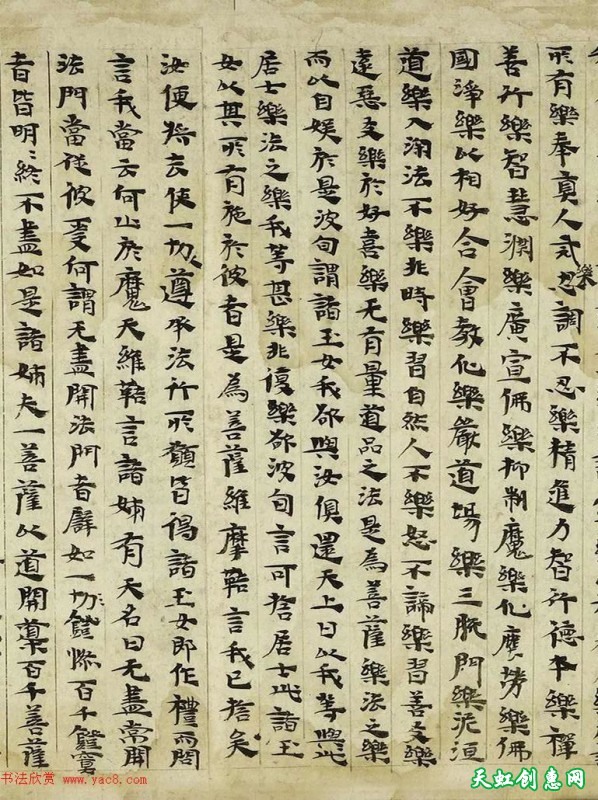 形有樂奉真人式忍調不忍樂精進力智行德本樂禪
善行樂智慧淵樂廣宣佛樂抑制魔樂化塵勞樂佛
國淨樂以相好合會教化樂嚴道場樂三脫門樂泥洹
道樂入深法不樂非時樂習自然人不樂怒不諦樂習善友樂
遠惡友樂於好喜樂无有量道品之法是為菩薩樂法之樂
而以自娛於是波旬謂諸玉女我欲與汝俱還天上曰以我等與此
居士樂法之樂我等甚樂非復樂欲波旬言可捨居士此諸玉
女以其所有施於彼者是為菩薩維摩詰言我已捨矣
汝便將去使一切遵承法行所願皆得諸玉女即作禮而問
言我當云何止於魔天維詰言諸姊有天名曰无盡常開
法門當從彼受何謂无盡開法門者譬如一切燈燃百千燈冥
者皆明明終不盡如是諸姊夫一菩薩以道開導百千菩薩
樂
书法欣赏 www.yac8.com
天虹创惠网